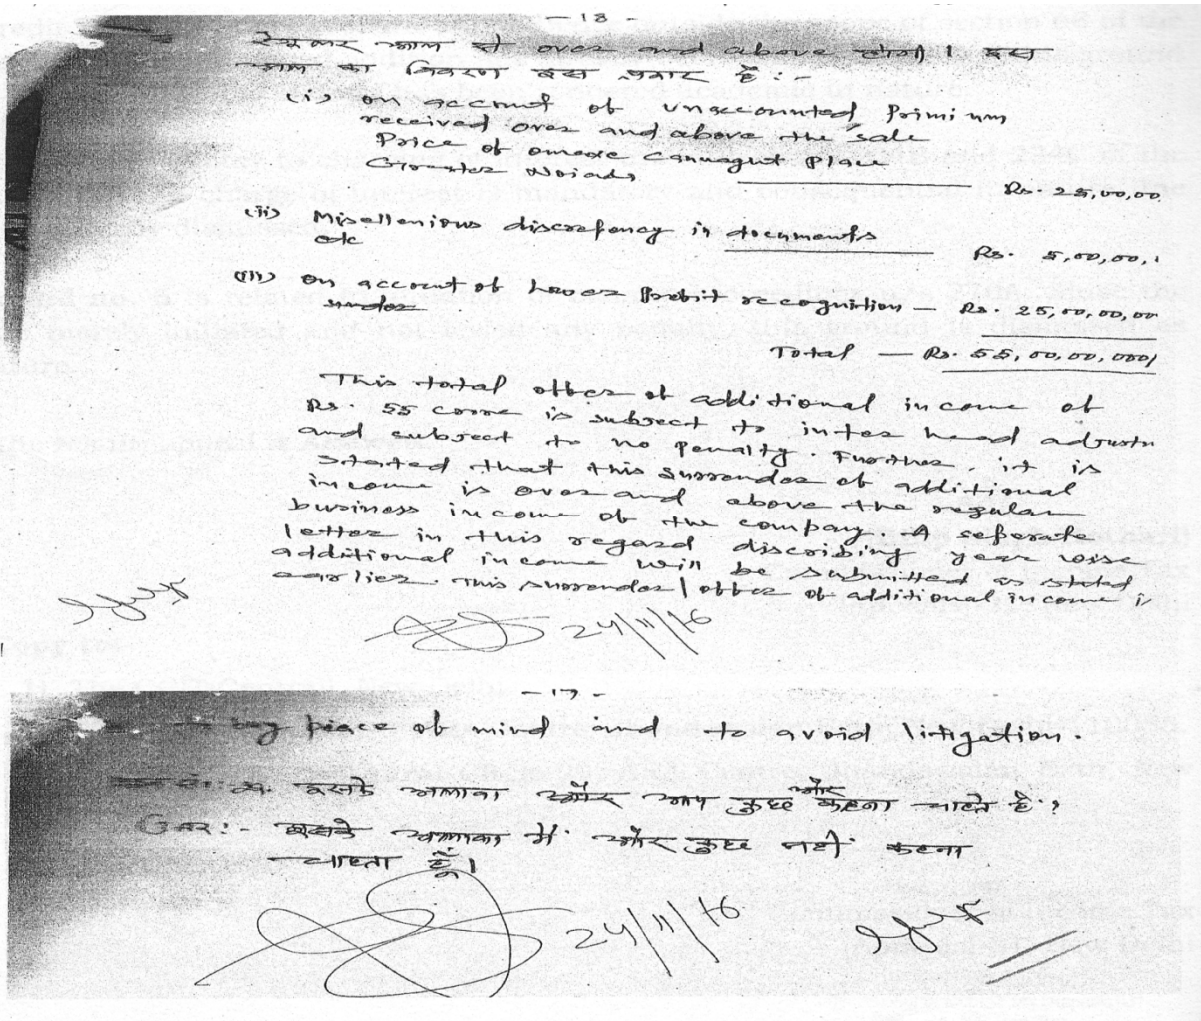 18
रेगुलर आय से over and above होगी। इस
आय का विवरण इस प्रकार है:-
(i) on account of unaccounted Primium
received over and above the sale
Price of omaxe Connaught Place
Greater Noiada
Rs. 25,00,00
(ii) Misellenious discrepency in documents
etc
Rs. 5,00,00,
(iii) on account of Lower Profit recognition — Rs. 25,00,00,00
under
Total — Rs. 55,00,00,000/
This total offer of additional income of
Rs. 55 corre is subject to inter head adjustn
and subject to no penalty. Further it is
stated that this surrender of additional
income is over and above the regular
business income of the company. A seperate
letter in this regard discribing year wise
additional income will be submitted as stated
earlier. This surrender / offer of additional income is
24/11/16
- 17 -
buy peace of mind and to avoid litigation.
इसके अलावा और आप कुछ और कहना चाहते है?
उत्तर:- इसके अलावा में और कुछ नही कहना
चाहता हूँ।
24/11/16